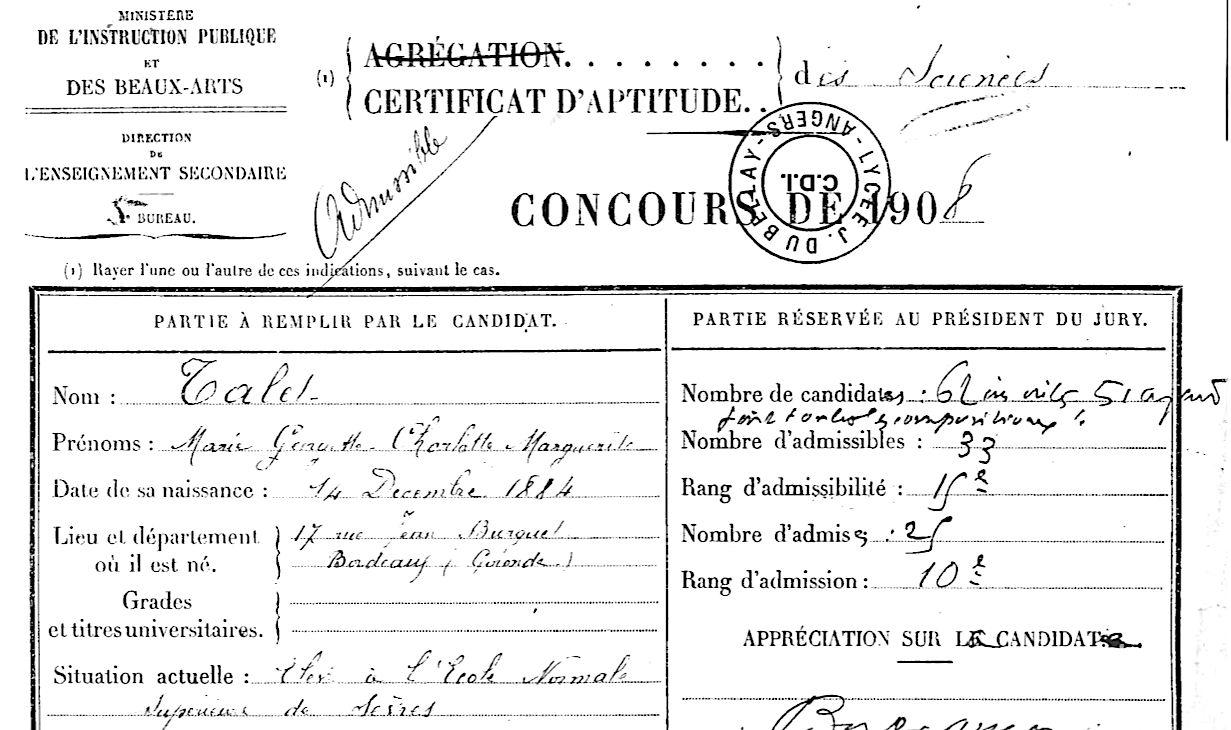 MINISTÈRE
DE L'INSTRUCTION PUBLIQUE
ET
DES BEAUX-ARTS
DIRECTION
DE
L'ENSEIGNEMENT SECONDAIRE
BUREAU.
(1) { AGRÉGATION. . . . . . . . . } des Sciences
CERTIFICAT D'APTITUDE. .
Admissible
LYCÉE J. DU BELLAY - ANGERS -
C.D.I.
CONCOURS DE 1908
(1) Rayer l'une ou l'autre de ces indications, suivant le cas.
PARTIE À REMPLIR PAR LE CANDIDAT.
Nom : Talet
Prénoms : Marie Georgette Charlotte Marguerite
Date de sa naissance : 14 Decembre 1884
Lieu et département où il est né. } 17 rue Jean Burguet
Bordeaux (Gironde)
Grades
et titres universitaires. }
Situation actuelle : Elève à l'Ecole Normale
Supérieure de Sèvres
PARTIE RÉSERVÉE AU PRÉSIDENT DU JURY.
Nombre de candidates : 62 inscrites 51 ayant
fait toutes les compositions
Nombre d'admissibles : 33
Rang d'admissibilité : 15e
Nombre d'admises : 25
Rang d'admission : 10e
APPRÉCIATION SUR LA CANDIDATE